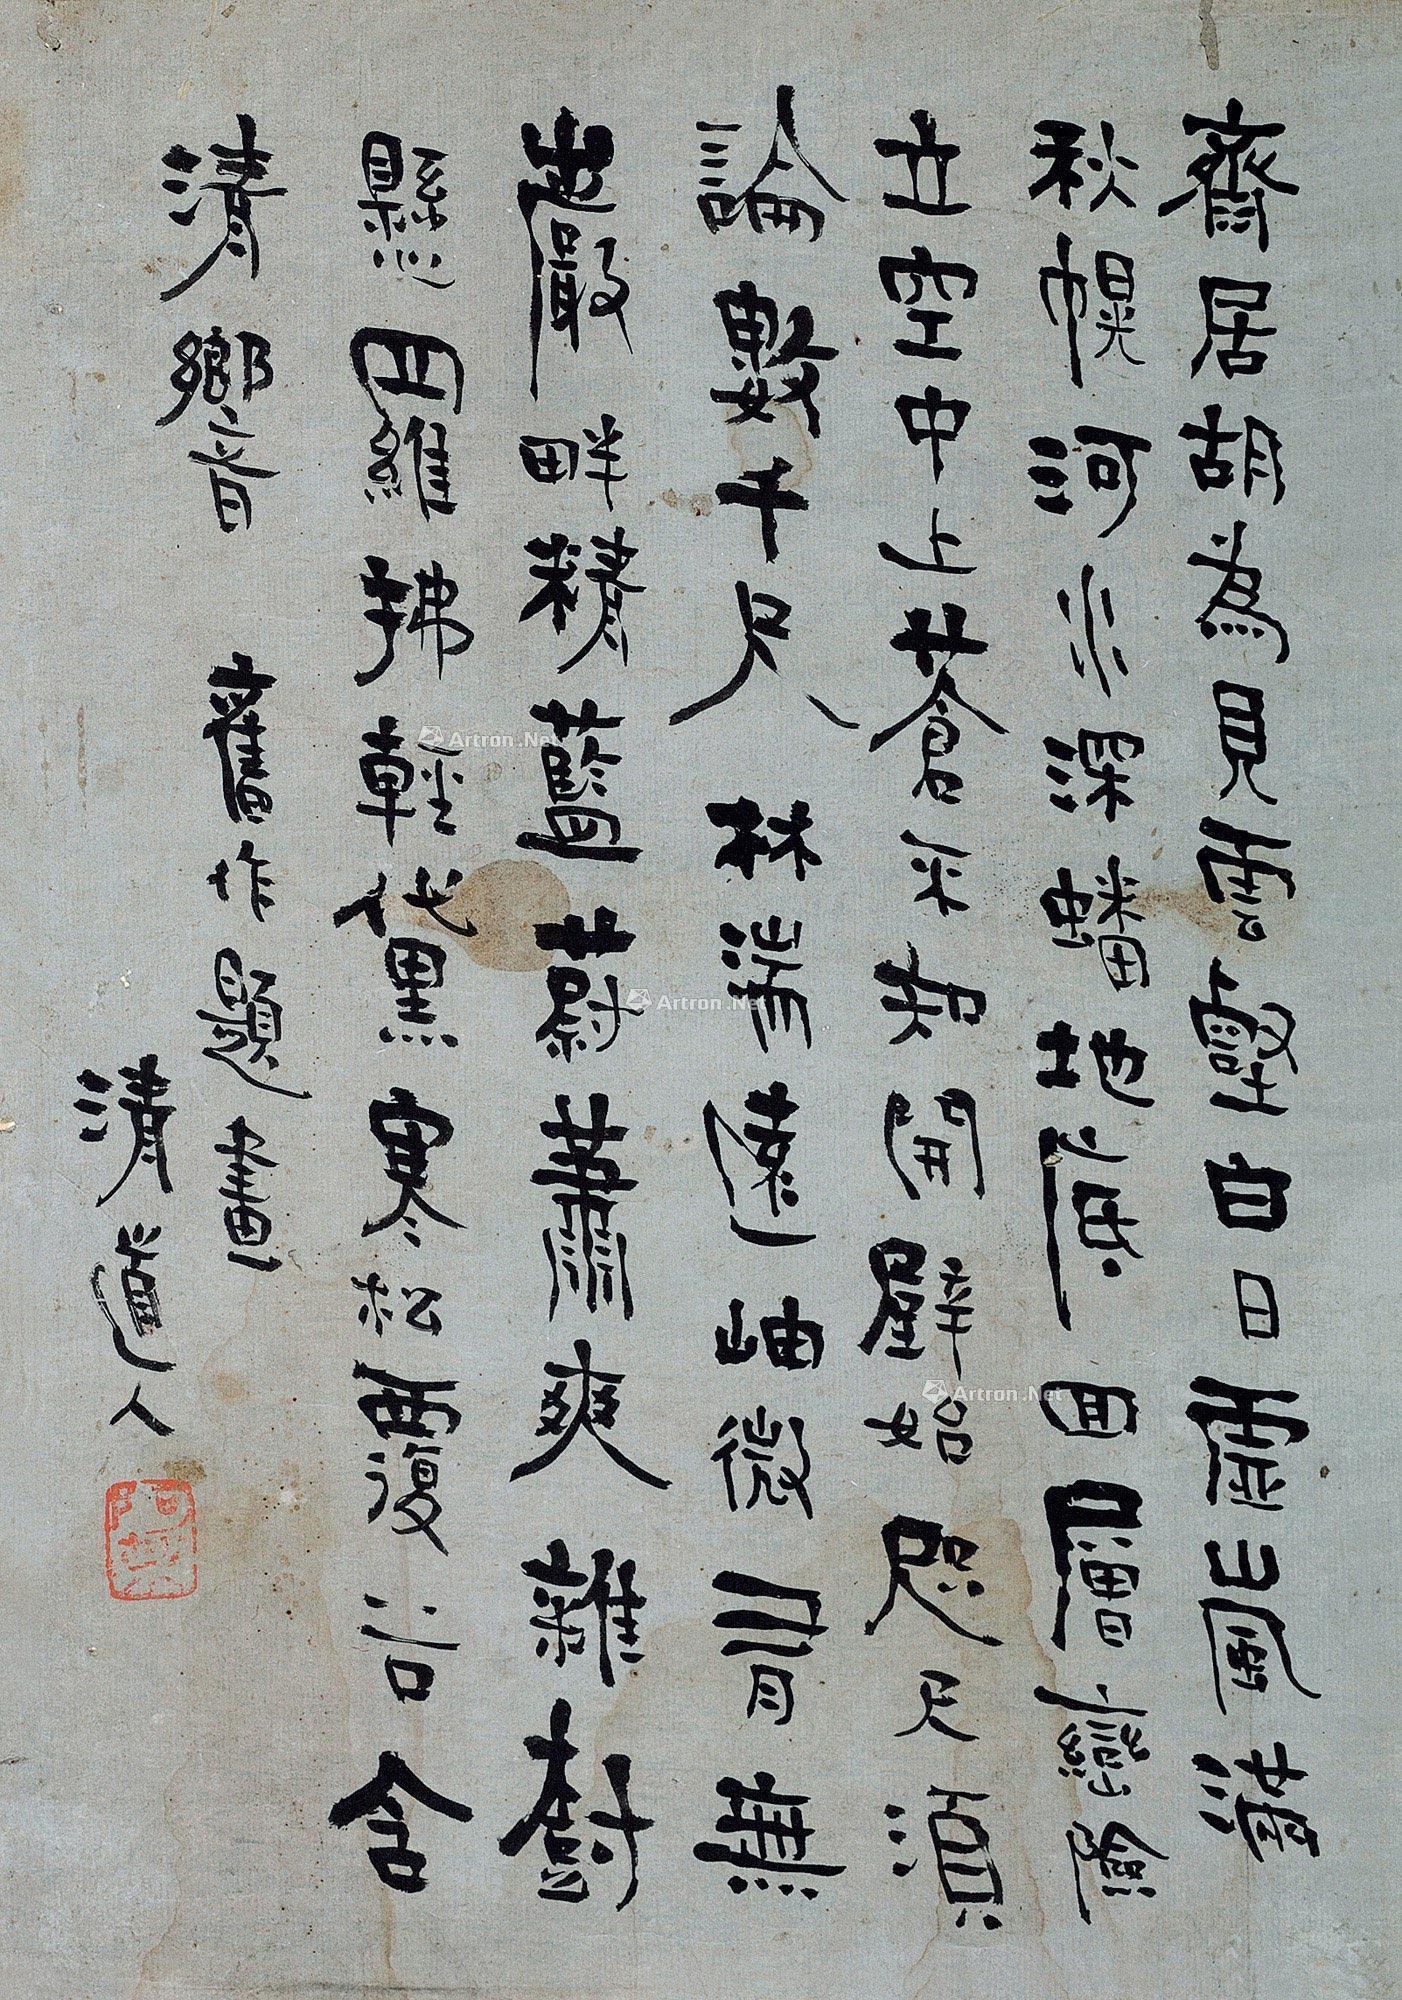 齋居胡為見雲壑白日虛山風滿
秋幌河水深蟠地底回層巒險
立空中上蒼來知開闢始咫尺須
論數千尺林湍遠岫微有無
出巖畔精藍蔚蕭爽雜樹
懸四維拂輕代黑寒松覆谷含
清響 舊作題畫
清道人
Artron.Net
Artron.Net
Artron.Net